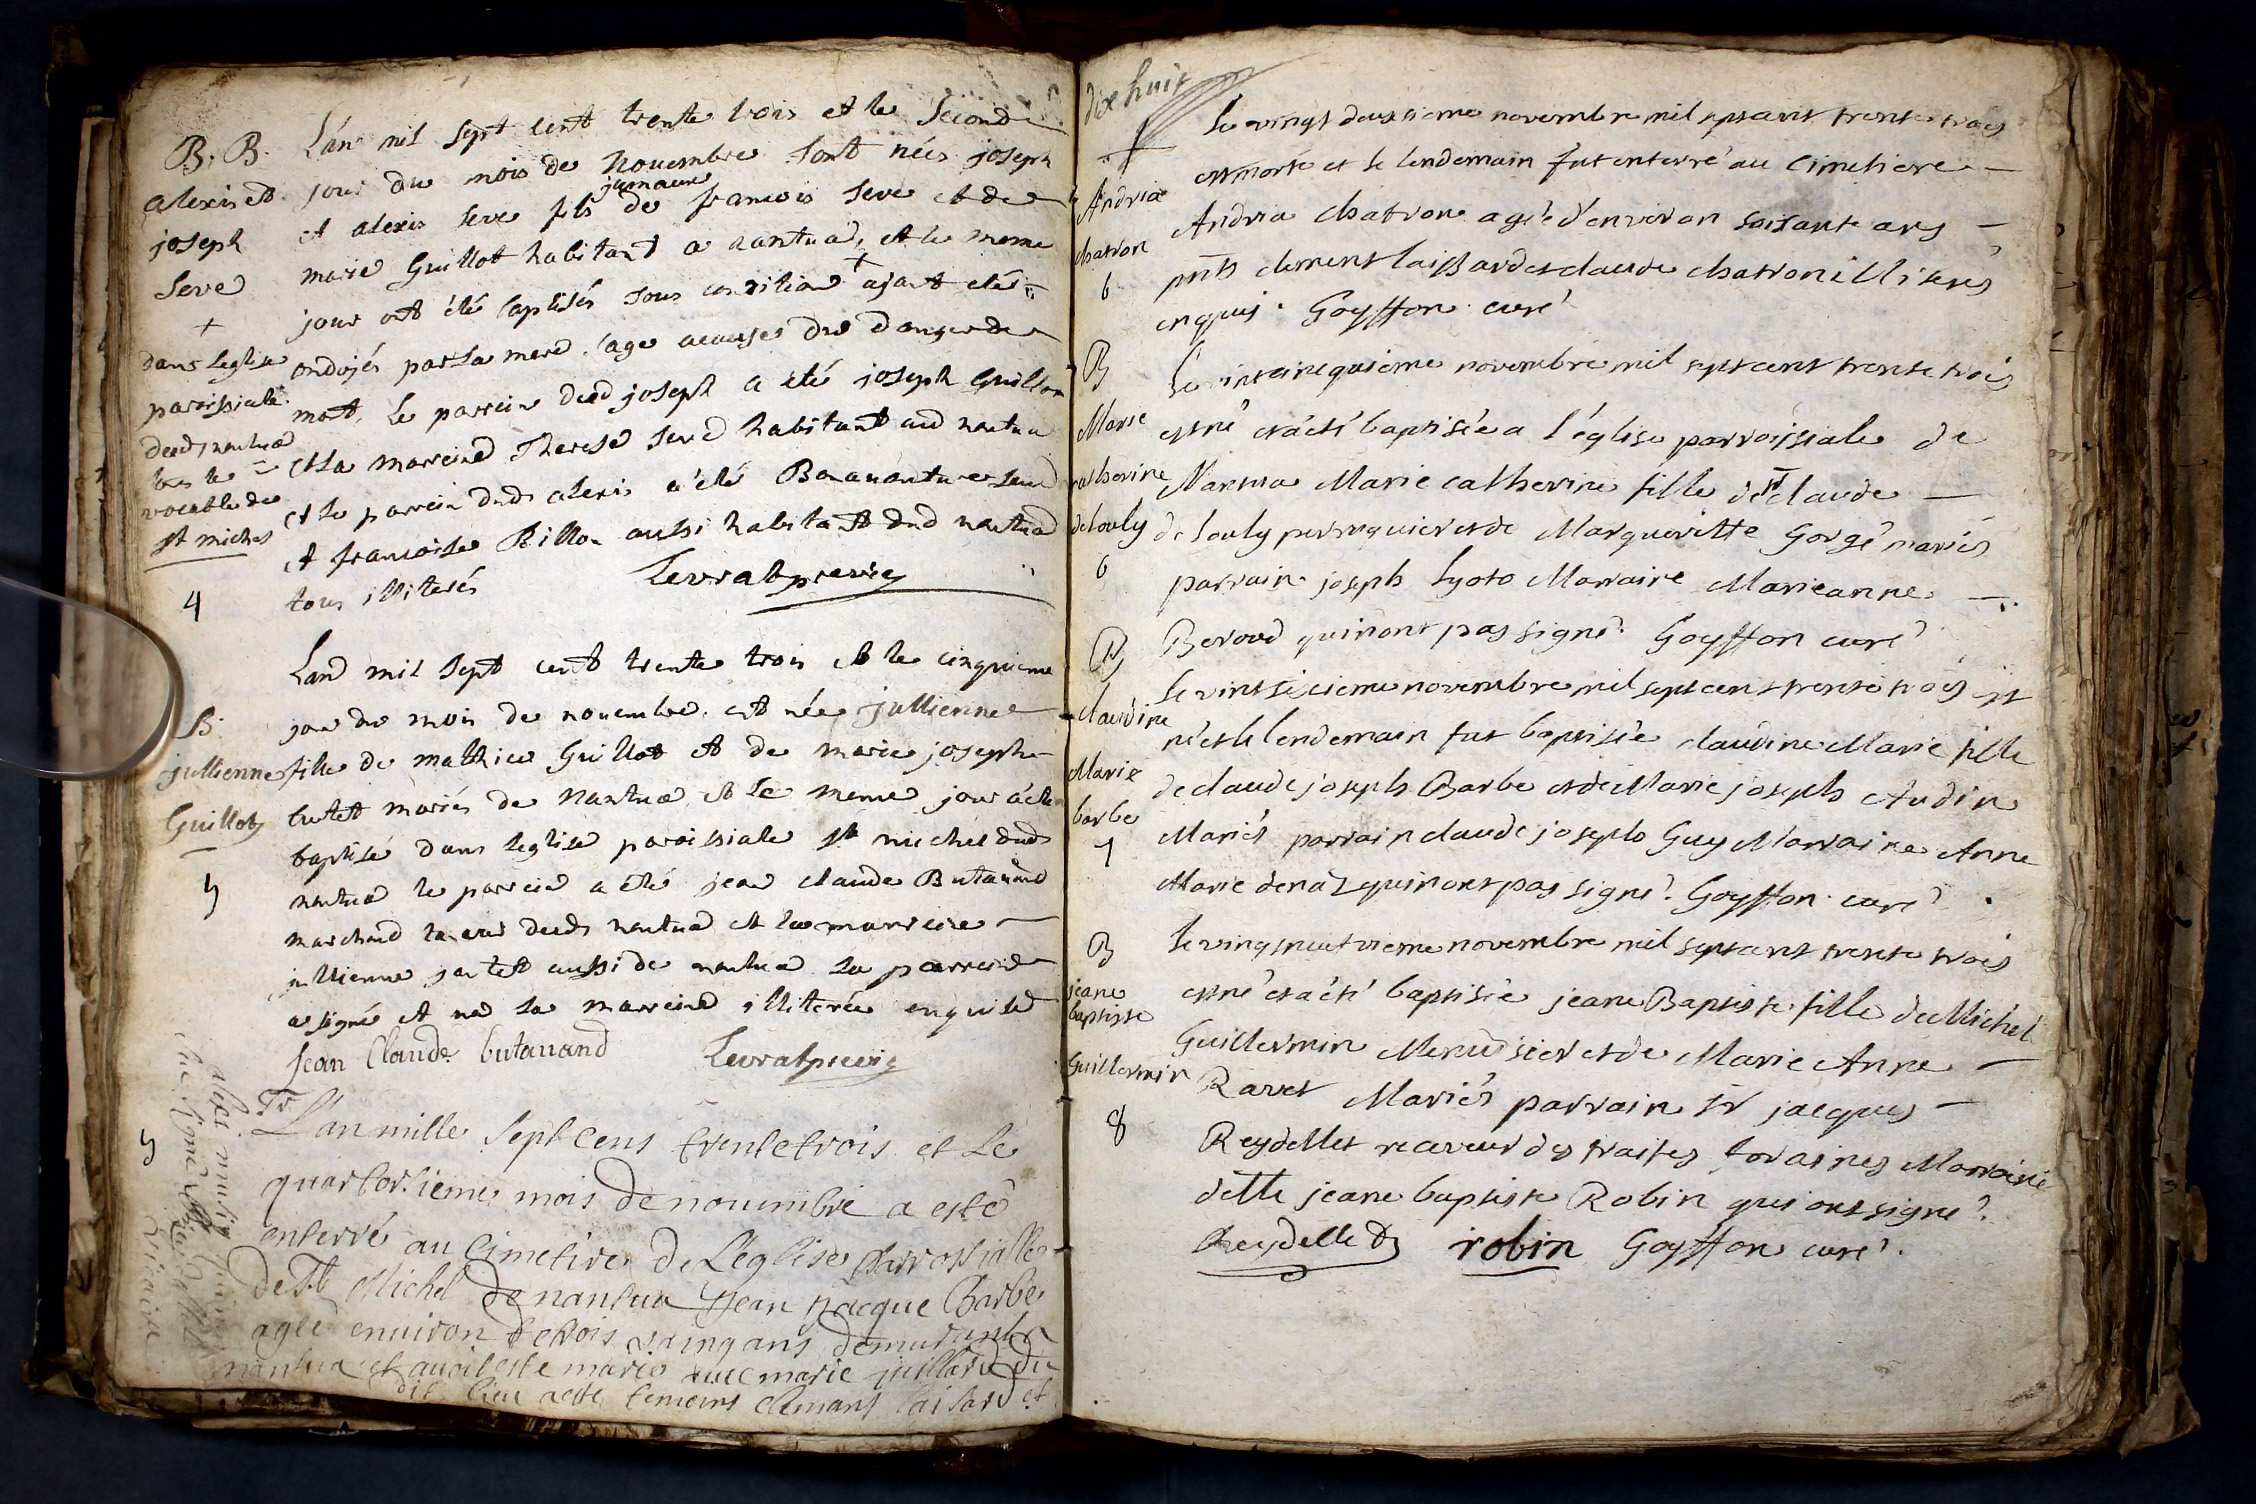 B. B.
alexis et
joseph
Seve
+
dans leglise
paroissiale
dud nantua
sous le
vocable de
st michel
4
L'an mil sept cent trente trois et le second
jour du mois de Novembre sont nées joseph
et alexis seve fils jumaux de francois seve et de
marie Guillot habitant a nantua, et le meme
jour ont été baptisés sous condition + ajant etés
ondojés par la mere sage acause du danger de
mort, le parrein dud joseph a été joseph Guillot
et la marreine Therese seve habitant aud nantua
et le parrein dud alexis a été Bonauanture seve
et francoise Rillo aussi habitant dud nantua
tous illiterés
Levrat
B.
jullienne
Guillot
5
Lan mil sept cent trente trois et le cinquieme
jour du mois de nouembre est née jullienne
fille de mathieu Guillot et de marie josephe
butet mariés de Nantua et le meme jour a été
baptisé dans leglise paroissiale st michel dud
nantua le parrein a été jean claude Butauand
marchand taneur dud nantua et la marreine
jullienne jantet aussi de nantua le parrein
a signé et non la marreine illiterée enquise
Jean Claude butauand Levrat
5
L'an mille sept cens trente trois et le
quartorsieme mois de nouimbre a esté
enterré au Cimetire de L'eglise Parrossialle
de St Michel de nantua Jean Jacque Barbe
agée enuiron de trois vaingt ans demurant a
nantua et auoit esté marié auec marie juillard du
dit lieu acte temoins clemans laisard et
vicaire
dix huit
+
Andria
chatron
6
Le vingt deuxieme novembre mil sept cent trente trois
est morte et le lendemain fut enterré au Cimetiere
Andria chatron agée d'environ soisante ans
pnts clement laissard et claude chatron illiterés
enquis. Goyffon curé
B
Marie
catherine
de louly
6
Le vint cinquieme novembre mil sept cent trente trois
est né et a eté baptisée a l'église parroissiale de
Nantua Marie catherine fille de St claude
de louly perruquier et de Marguerite Gorgé mariés
parrain joseph lyoto Marraine Marieanne
Beroud qui n'ont pas signé. Goyffon curé
B
claudine
Marie
barbe
7
Le vint sixieme novembre mil sept cent trente trois est
né et le lendemain fut baptisée claudine Marie fille
de claude joseph Barbe et de Marie joseph Audin
Mariés parrain claude joseph Guy Marraine Anne
Marie denaz qui n'ont pas signé. Goyffon curé
B
jeane
baptiste
Guillermin
8
Le vingt neufvieme novembre mil sept cent trente trois
est né et a eté baptisée jeane Baptiste fille de Michel
Guillermin Menuisier et de Marie Anne
Ravet Mariés parrain Sr jacques
Reydellet receveur des traites foraines Marraine
delle jeane baptiste Robin qui ont signé.
Reydellet robin Goyffon curé.